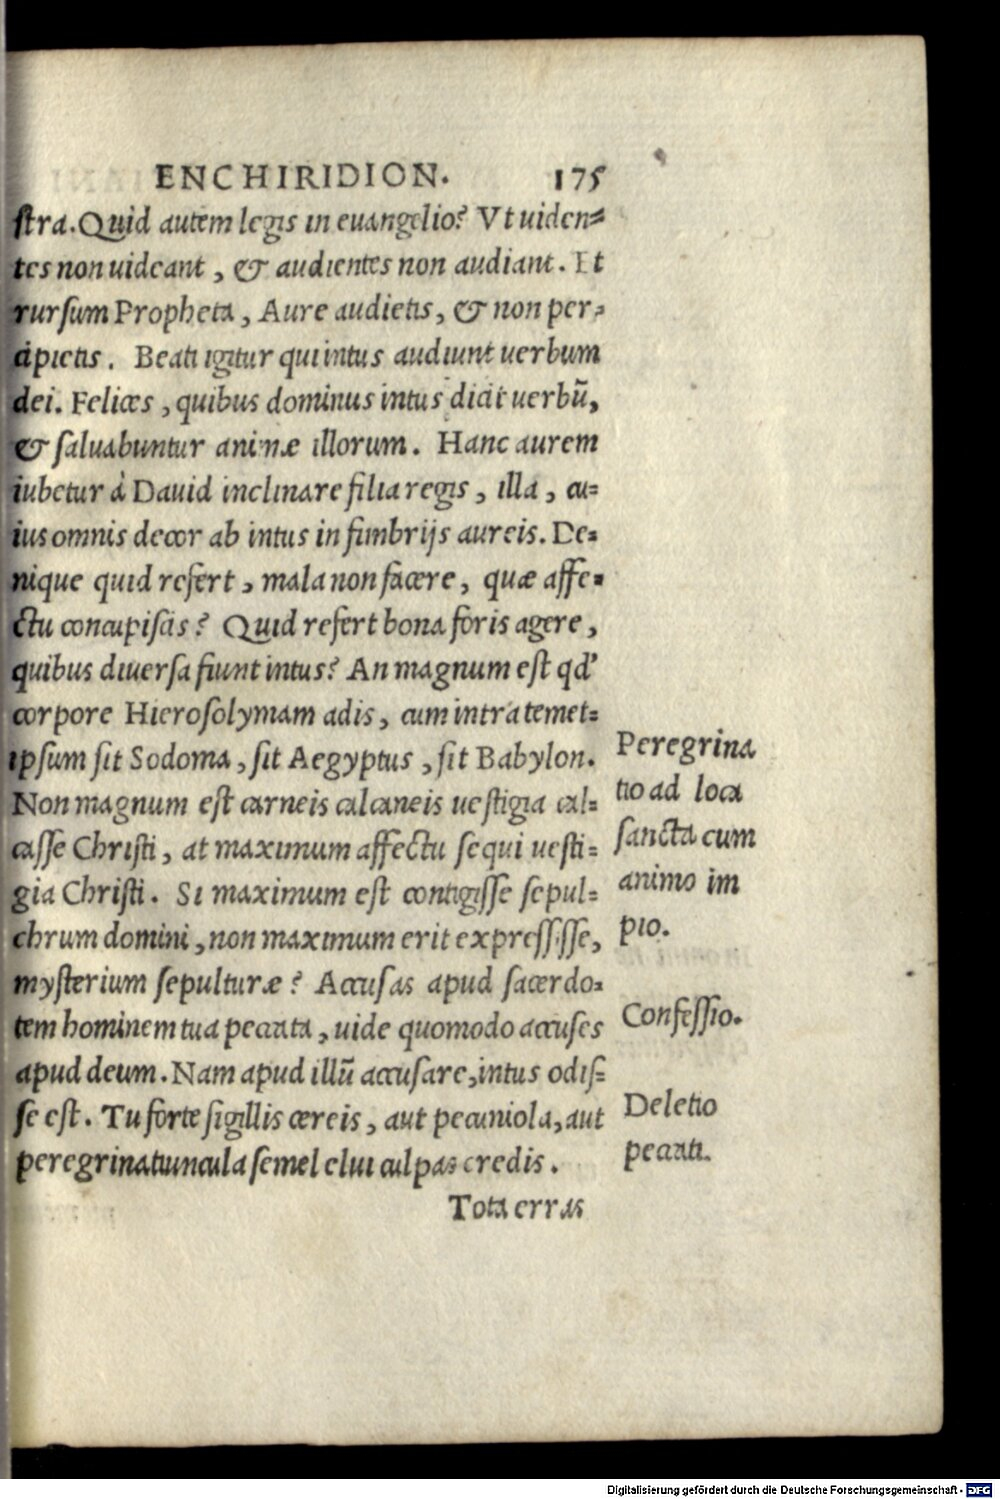 ENCHIRIDION. 175
stra. Quid autem legis in euangelio? Vt uiden=
tes non uideant, & audientes non audiant. Et
rursum Propheta, Aure audietis, & non per=
cipietis. Beati igitur qui intus audiunt uerbum
dei. Felices, quibus dominus intus dicit uerbũ,
& saluabuntur animæ illorum. Hanc aurem
iubetur à Dauid inclinare filia regis, illa, cu=
ius omnis decor ab intus in fimbrijs aureis. De=
nique quid refert, mala non facere, quæ affe=
ctu concupiscis? Quid refert bona foris agere,
quibus diuersa fiunt intus? An magnum est qd'
corpore Hierosolymam adis, cum intra temet=
ipsum sit Sodoma, sit Aegyptus, sit Babylon.
Non magnum est carneis calcaneis uestigia cal=
casse Christi, at maximum affectu sequi uesti=
gia Christi. Si maximum est contigisse sepul=
chrum domini, non maximum erit expressisse,
mysterium sepulturæ? Accusas apud sacerdo=
tem hominem tua peccata, uide quomodo accuses
apud deum. Nam apud illũ accusare, intus odis=
se est. Tu forte sigillis cereis, aut pecuniola, aut
peregrinatiuncula semel elui culpas credis.
Tota erras
Peregrina
tio ad loca
sancta cum
animo im
pio.
Confessio.
Deletio
peccati.
Digitalisierung gefördert durch die Deutsche Forschungsgemeinschaft - DFG